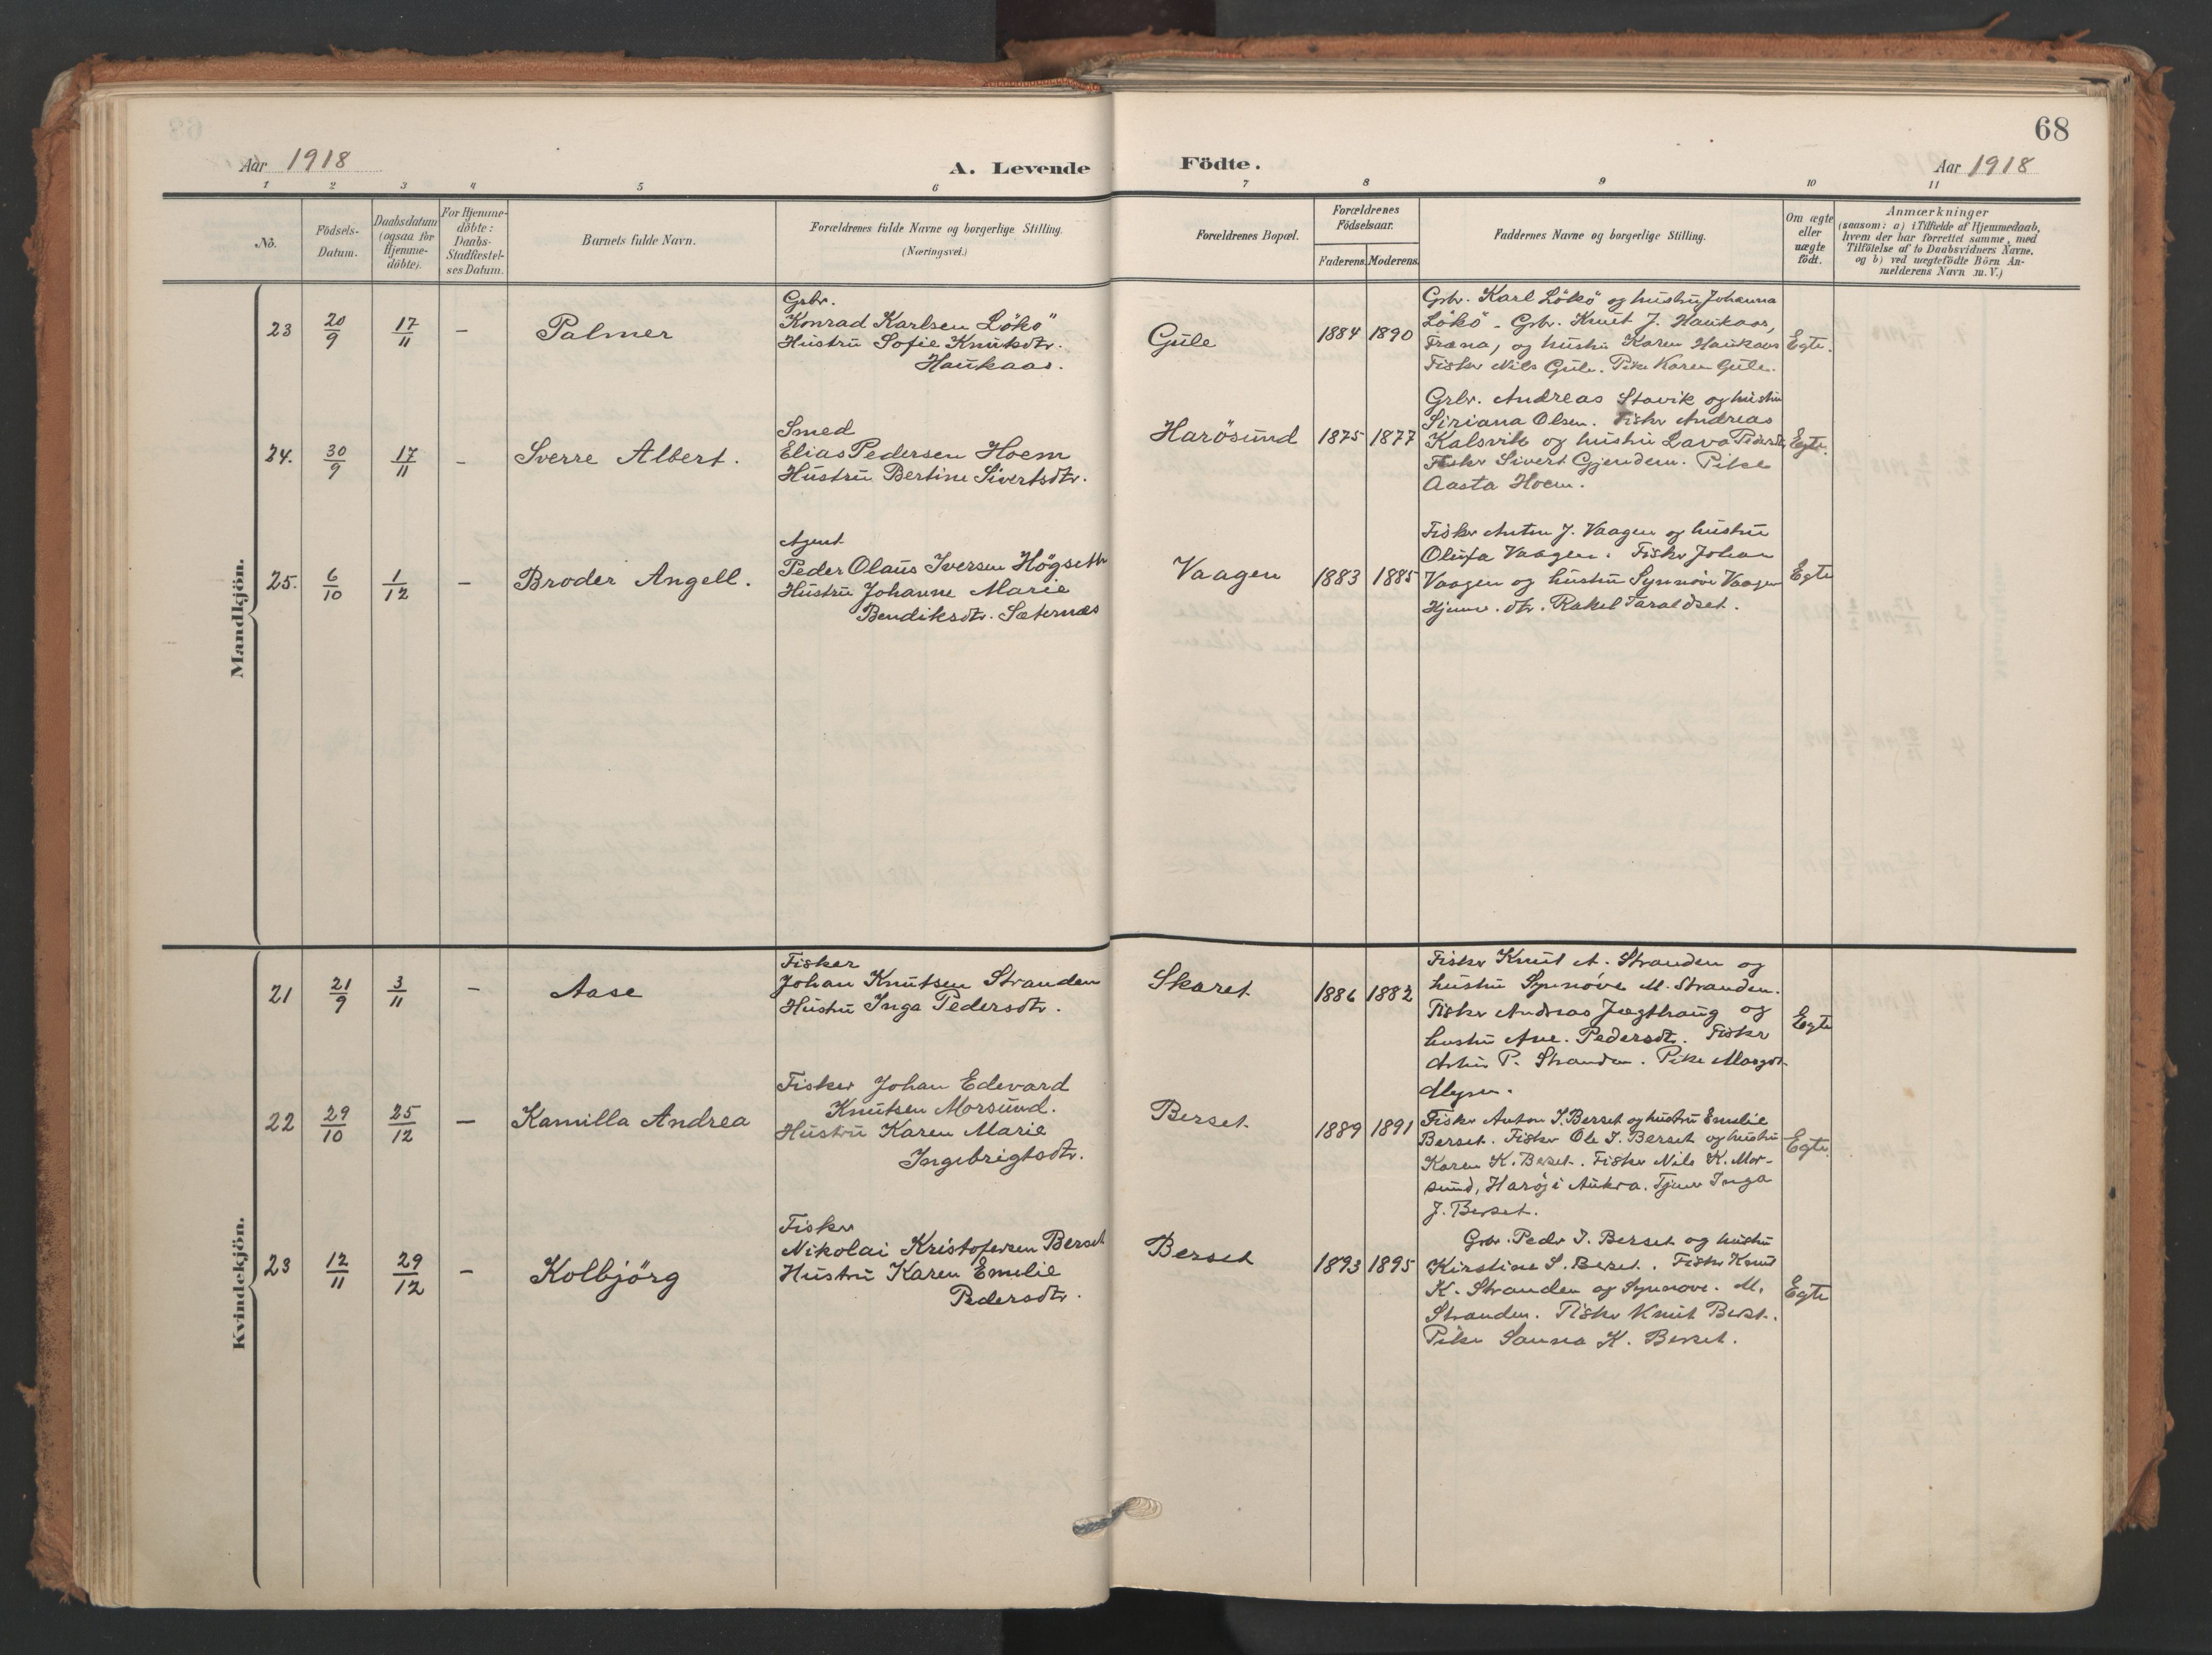 68
Aar 1918
A. Levende Födte.
Aar 1918
1 2 3 4 5 6 7 8 9 10 11
No.
Födsels-
Datum.
Daabsdatum
(ogsaa for
Hjemme-
döbte).
For Hjemme-
döbte:
Daabs-
Stadfæstel-
ses Datum.
Barnets fulde Navn.
Forældrenes fulde Navne og borgerlige Stilling.
(Næringsvei.)
Forældrenes Bopæl.
Forældrenes
Födselsaar.
Faderens. Moderens.
Faddernes Navne og borgerlige Stilling.
Om ægte
eller
uægte
födt.
Anmærkninger
(saasom: a) i Tilfælde af Hjemmedaab,
hvem der har forrettet samme, med
Tilföielse af to Daabsvidners Navne,
og b) ved uægtefödte Börn An-
melderens Navn m. V.)
Mandkjön.
23 20/9 17/11 – Palmer
Grbr.
Konrad Karlsen Lökö
Hustru Sofie Knutsdtr.
Haukaas.
Gule 1884 1890
Grbr. Karl Lökö og hustru Johanna
Lökö. Grbr. Knut J. Haukaas,
Fræna, og hustru Karen Haukaas
Fisker Nils Gule. Pike Karen Gule.
Egte.
24. 30/9 17/11 – Sverre Albert.
Smed
Elias Pedersen Hoem
Hustru Bertine Sivertsdtr.
Harösund 1875 1877
Grbr. Andreas Stavik og hustru
Siriana Olsen. Fisker Andreas
Kalsvik og hustru Lava Pedersdtr.
Fisker Sivert Gjendem. Pike
Aasta Hoem.
Egte.
25. 6/10 1/12 – Broder Angell.
Agent
Peder Olaus Iversen Högseth
Hustru Johanne Marie
Bendiksdtr. Sæternes
Vaagen 1883 1885
Fisker Anton J. Vaagen og hustru
Olufa Vaagen. Fisker Johan
Vaagen og hustru Synnöve Vaagen
Hjemv. dtr. Rakel Taraldset.
Egte
Kvindekjön.
21 21/9 3/11 – Aase
Fisker
Johan Knutsen Stranden
Hustru Inga Pedersdtr.
Skaret 1886 1882
Fisker Knut A. Stranden og
hustru Synnöve M. Stranden.
Fisker Andreas Jægthaug og
hustru Ane Pedersdt. Fisker
P. Stranden. Pike Margot
Egte
22 29/10 25/12 – Kamilla Andrea
Fisker Johan Edevard
Knutsen Morsund.
Hustru Karen Marie
Ingebrigtsdtr.
Berset 1889 1891
Fisker Anton I. Berset og hustru Emelie
Berset. Fisker Ole I. Berset og hustru
Karen K. Berset. Fisker Nils K. Mor-
sund, Haröj i Aukra. Tjener Inga
J. Berset.
Egte.
23 12/11 29/12 – Kolbjörg
Fisker
Nikolai Kristofersen Berset
Hustru Karen Emelie
Pedersdtr.
Berset 1893 1895
Grbr. Peder I. Berset og hustru
Kirstine S. Berset. Fisker Knut
K. Stranden og Synnöve M.
Stranden. Fisker Knut Berset.
Pike Sanna K. Berset.
Egte